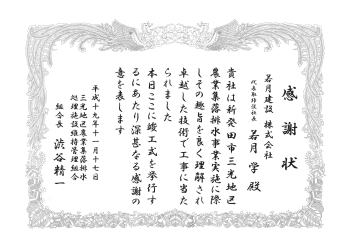 感謝状
若月建設 株式会社
代表取締役社長 若月 学 殿
貴社は新発田市三光地区
農業集落排水事業実施に際
しその趣旨を良く理解され
卓越した技術で工事に当た
られました
本日ここに竣工式を挙行す
るにあたり深甚なる感謝の
意を表します
平成十九年十一月十七日
三光地区農業集落排水
処理施設維持管理組合
組合長 渋谷 精一